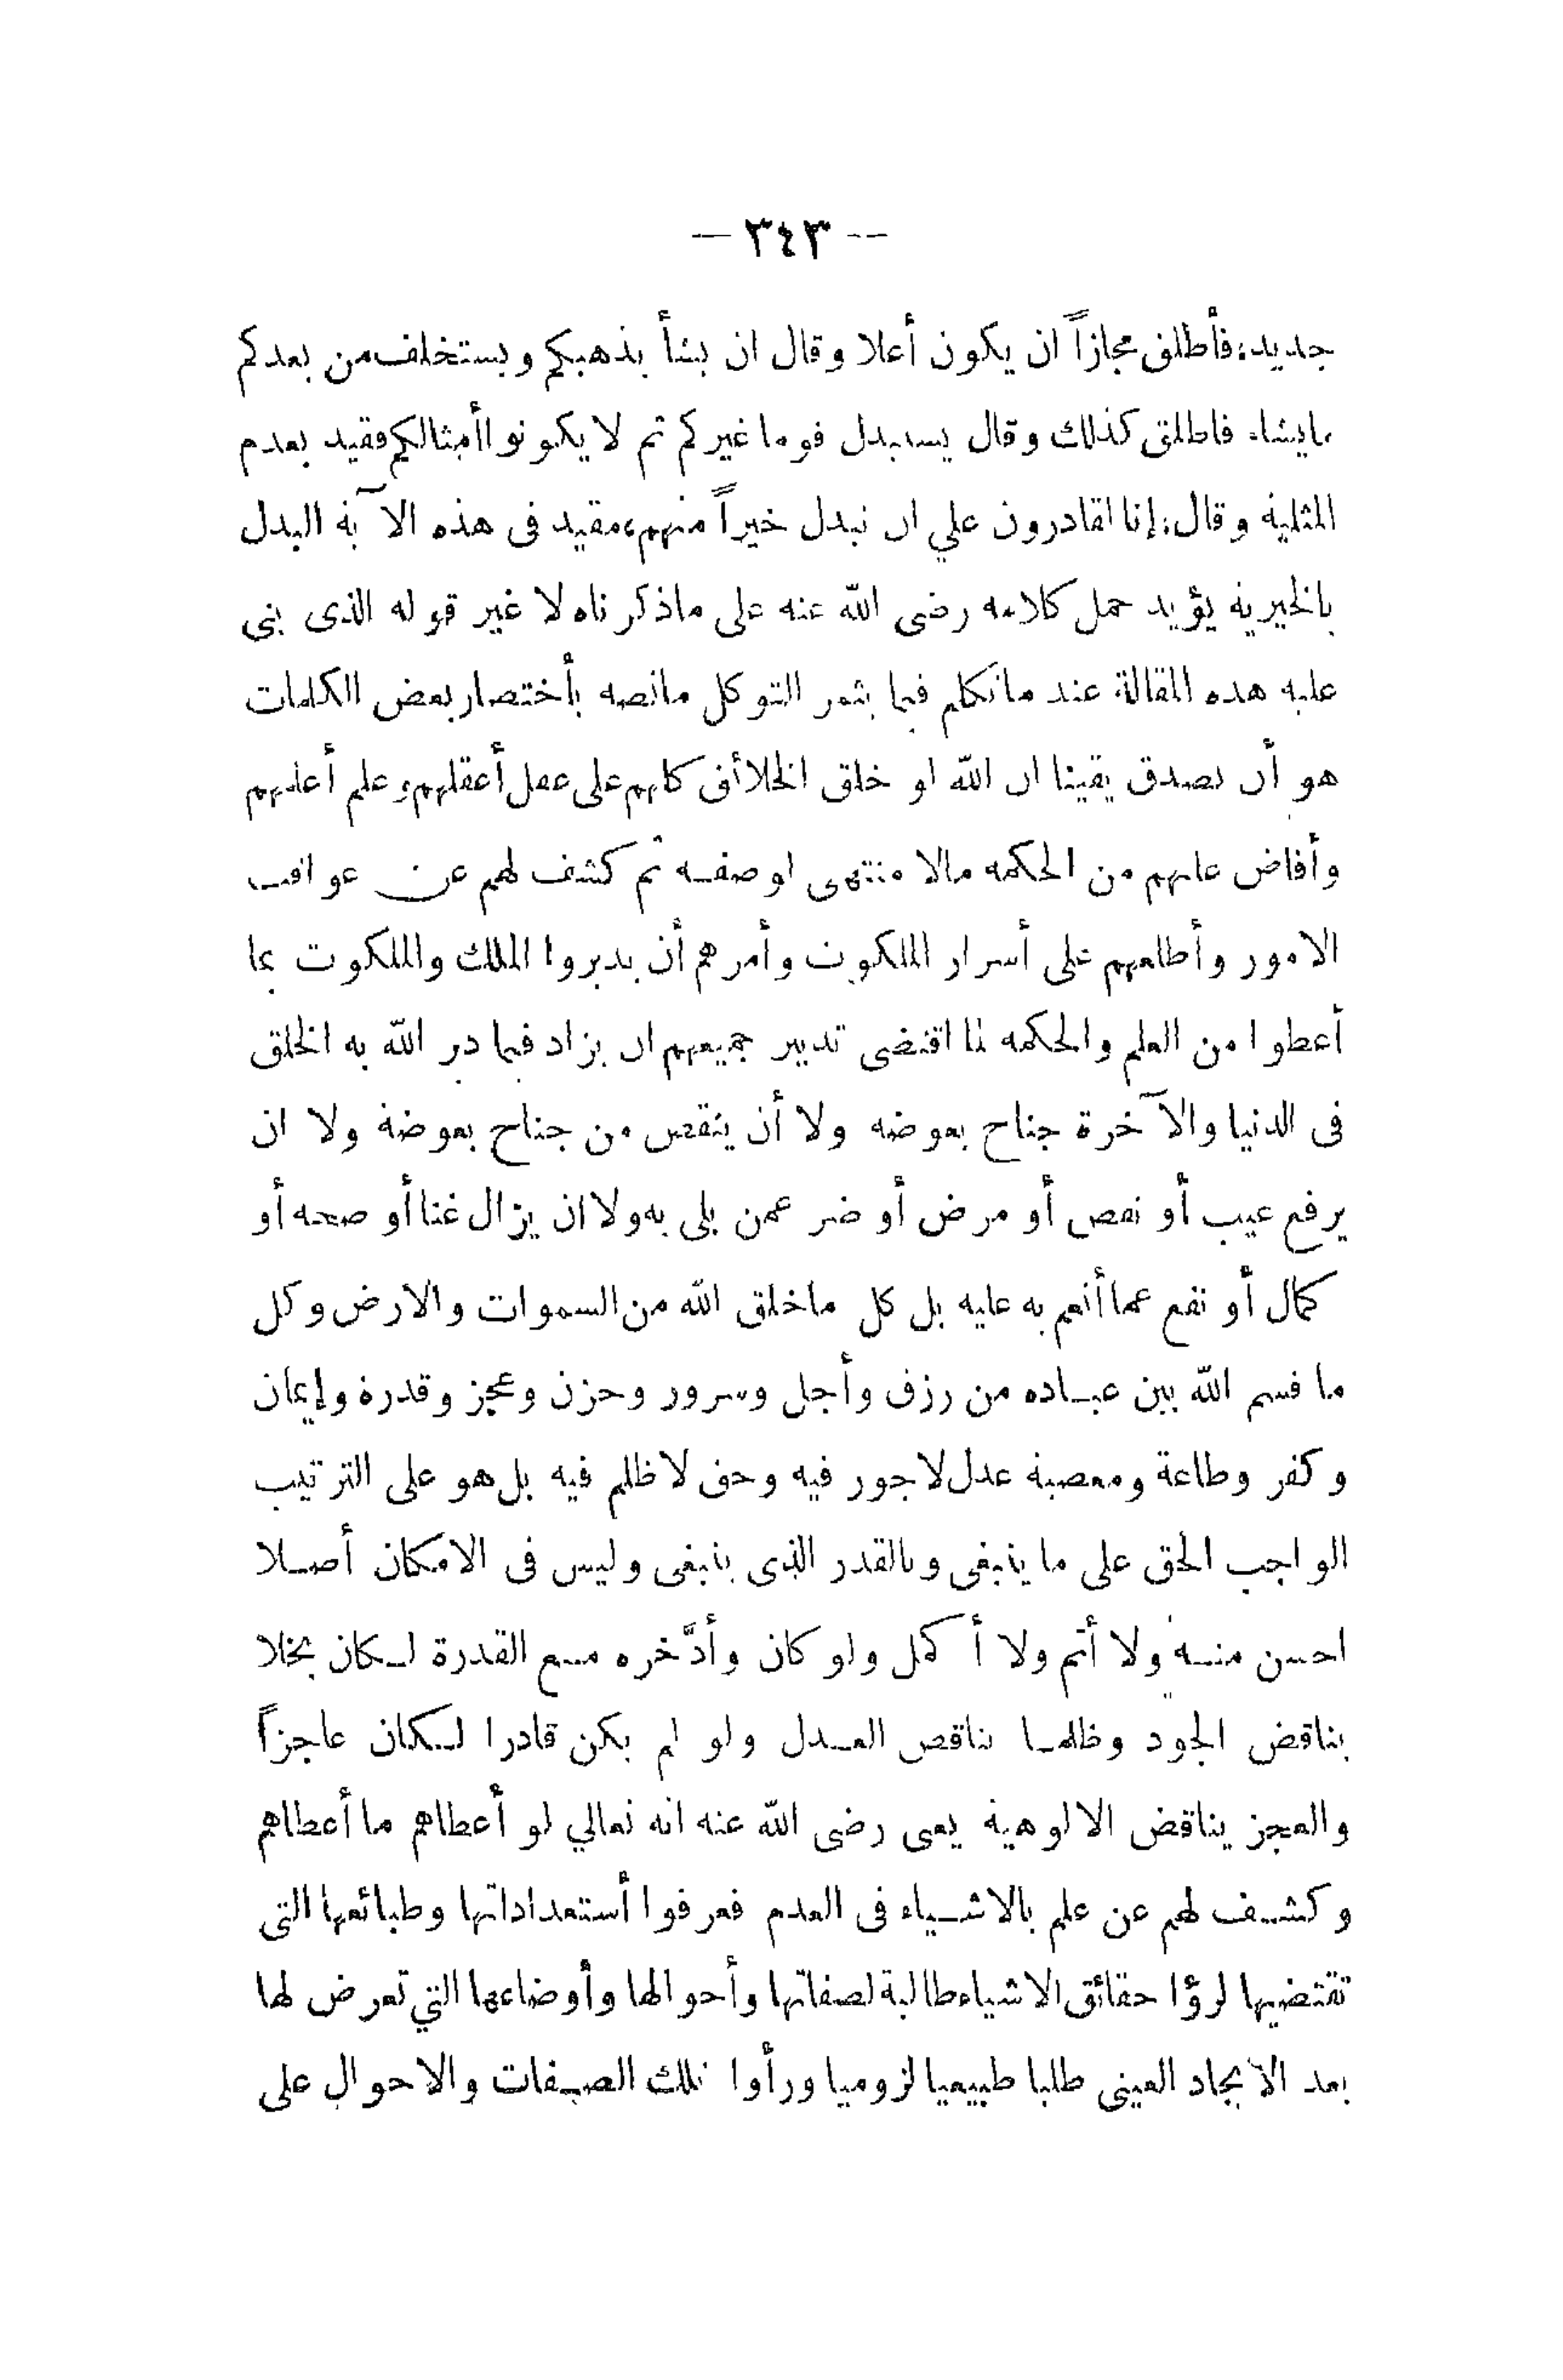 — ٣٤٣ —
جديد؛ فأطلق مجازاً ان يكون أعلا وقال ان يشأ يذهبكم ويستخلف من بعدكم
مايشاء فاطلق كذلك وقال يستبدل قوما غيركم ثم لا يكونوا أمثالكم فقيد بعدم
المثلية وقال؛ إنا لقادرون علي ان نبدل خيراً منهم، مقيد فى هذه الآية البدل
بالخيرية يؤيد حمل كلامه رضى الله عنه على ماذكرناه لا غير قوله الذى بنى
عليه هذه المقالة عند ماتكلم فيما يثمر التوكل مانصه بأختصار بعض الكلمات
هو أن يصدق يقينا ان الله لو خلق الخلائق كلهم على عقل أعقلهم وعلم أعلمهم
وأفاض عليهم من الحكمة مالا منتهى لوصفه ثم كشف لهم عن عواقب
الامور وأطلعهم على أسرار الملكوت وأمرهم أن يدبروا الملك والملكوت بما
أعطوا من العلم والحكمة لما اقتضى تدبير جميعهم ان يزاد فيما دبر الله به الخلق
فى الدنيا والآخرة جناح بعوضه ولا أن ينقص من جناح بعوضة ولا ان
يرفع عيب أو نقص أو مرض أو ضر عمن بلى به ولا ان يزال غنا أو صحه أو
كمال أو نفع عما أنعم به عليه بل كل ماخلق الله من السموات والارض وكل
ما قسم الله بين عباده من رزق وأجل وسرور وحزن وعجز وقدرة وإيمان
وكفر وطاعة ومعصية عدل لا جور فيه وحق لا ظلم فيه بل هو على الترتيب
الواجب الحق على ما ينبغى وبالقدر الذى ينبغى وليس فى الامكان أصلا
احسن منه ولا أتم ولا أكمل ولو كان وأدَّخره مع القدرة لكان بخلا
يناقض الجود وظلما يناقض العدل ولو لم يكن قادرا لكان عاجزاً
والعجز يناقض الالوهية يعى رضى الله عنه انه تعالي لو أعطاهم ما أعطاهم
وكشف لهم عن علم بالاشياء فى العدم فعرفوا أستعداداتها وطبائعها التى
تقتضيها لرؤا حقائق الاشياء طالبة لصفاتها وأحوالها وأوضاعها التي تعرض لها
بعد الايجاد العينى طلبا طبيعيا لزوميا ورأوا تلك الصفات والاحوال على